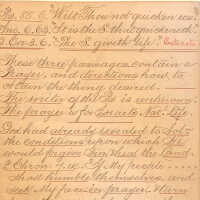 Ps. 85.6. "Wilt Thou not quicken us.
Jno. 6.63. "It is the S. that quickeneth"
2 Cor. 3.6. "The S. giveth life."
These three passages contain a
Prayer, and directions how to
obtain the thing desired.
The writer of the Ps is unknown.
The prayer is for Israel's Nat. Life.
God had already revealed to Sol
the conditions upon which He
would forgive Sin, & heal the Land
2 Chron. 7.14. If My people
shall humble themselves, and
seek My face in prayer. & turn